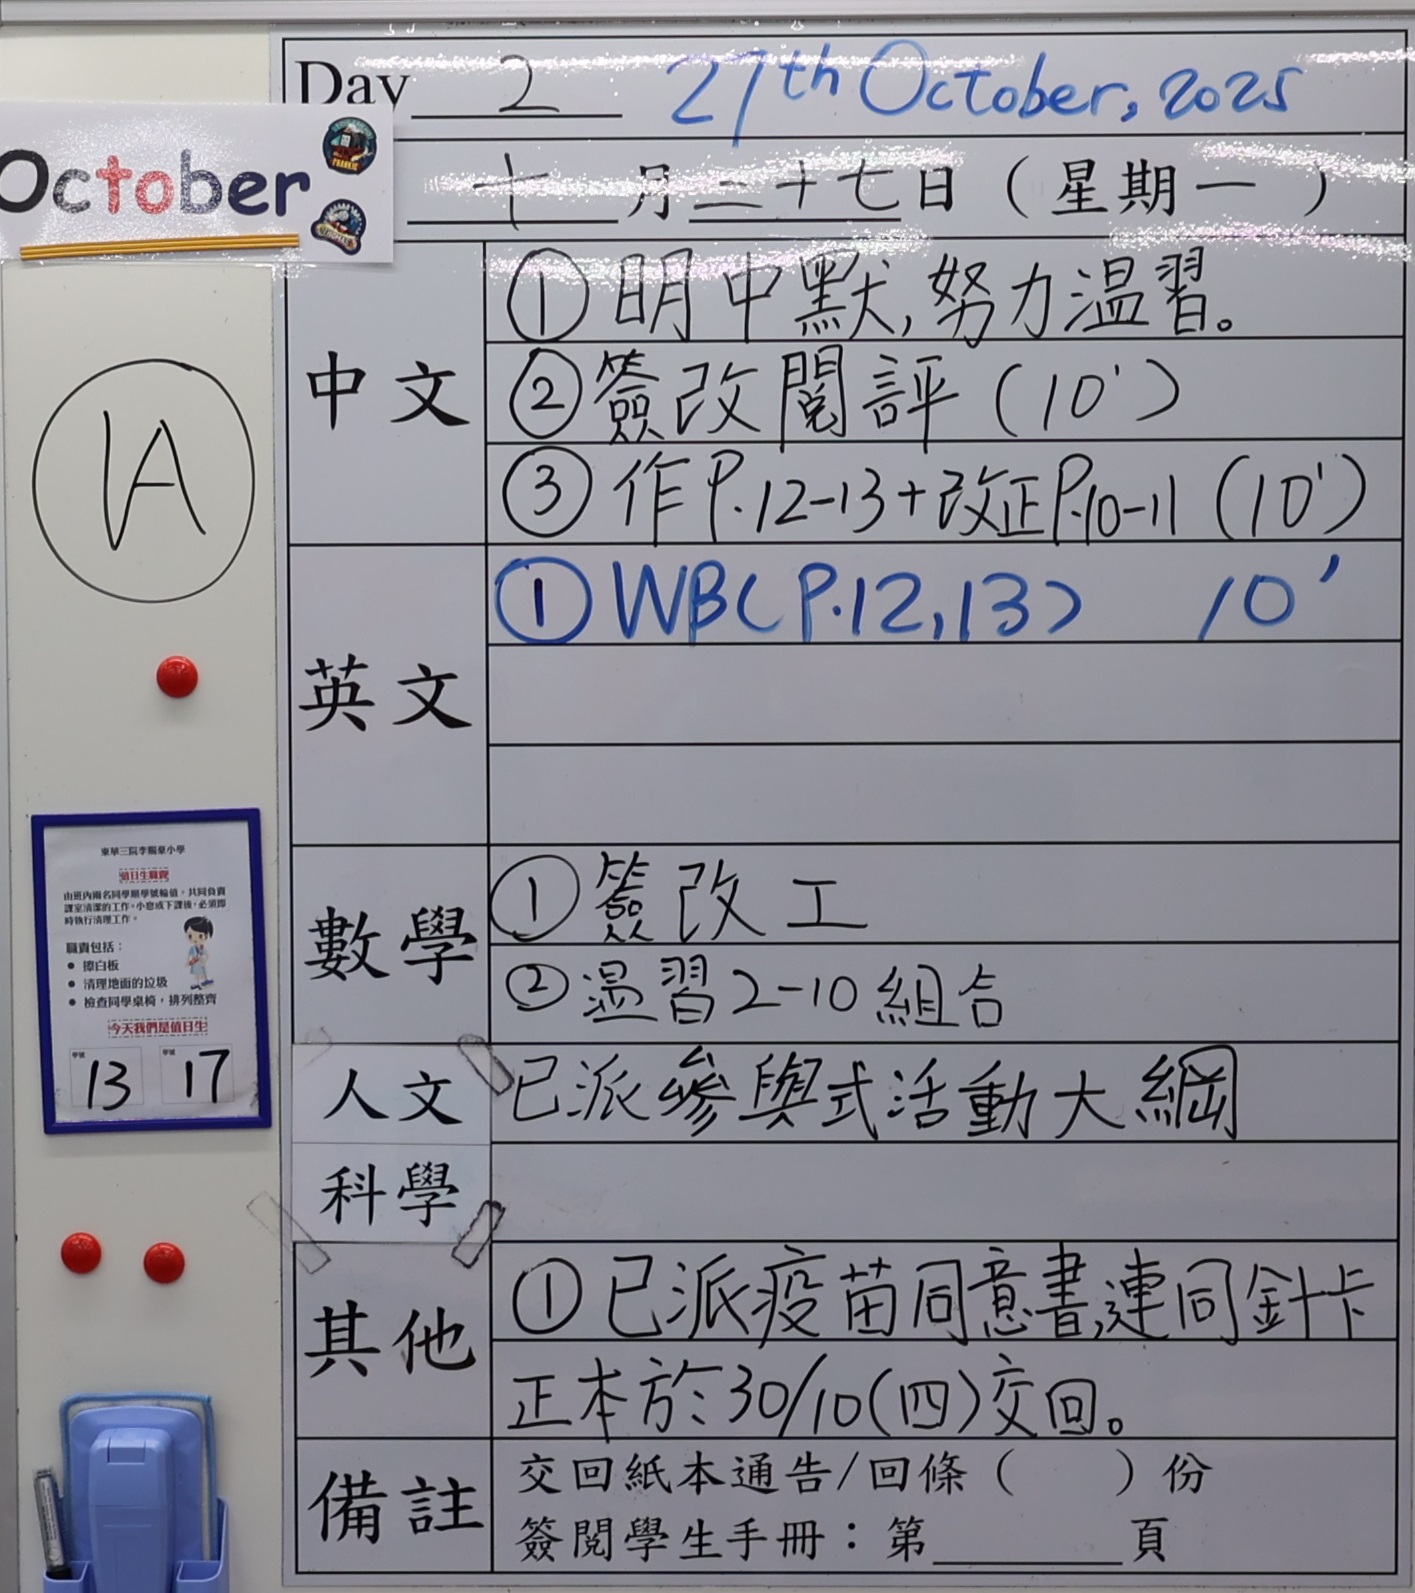 Day 2 27th October, 2025
October
十月二十七日（星期一）
1A
中文
① 明中默,努力温習。
② 簽改閱評（10'）
③ 作P.12-13+改正P.10-11（10'）
英文
① WB(P.12,13) 10'
數學
① 簽改工
② 温習2-10組合
人文
已派參與式活動大綱
科學
其他
① 已派疫苗同意書,連同針卡
正本於30/10(四)交回。
備註
交回紙本通告/回條（ ）份
簽閱學生手冊：第 頁
東華三院李賜豪小學
值日生職責
由班內兩名同學順學號輪值，共同負責
課室清潔的工作。小息或下課後，必須即
時執行清理工作。
職責包括：
• 擦白板
• 清理地面的垃圾
• 檢查同學桌椅，排列整齊
今天我們是值日生
學號 學號
13 17